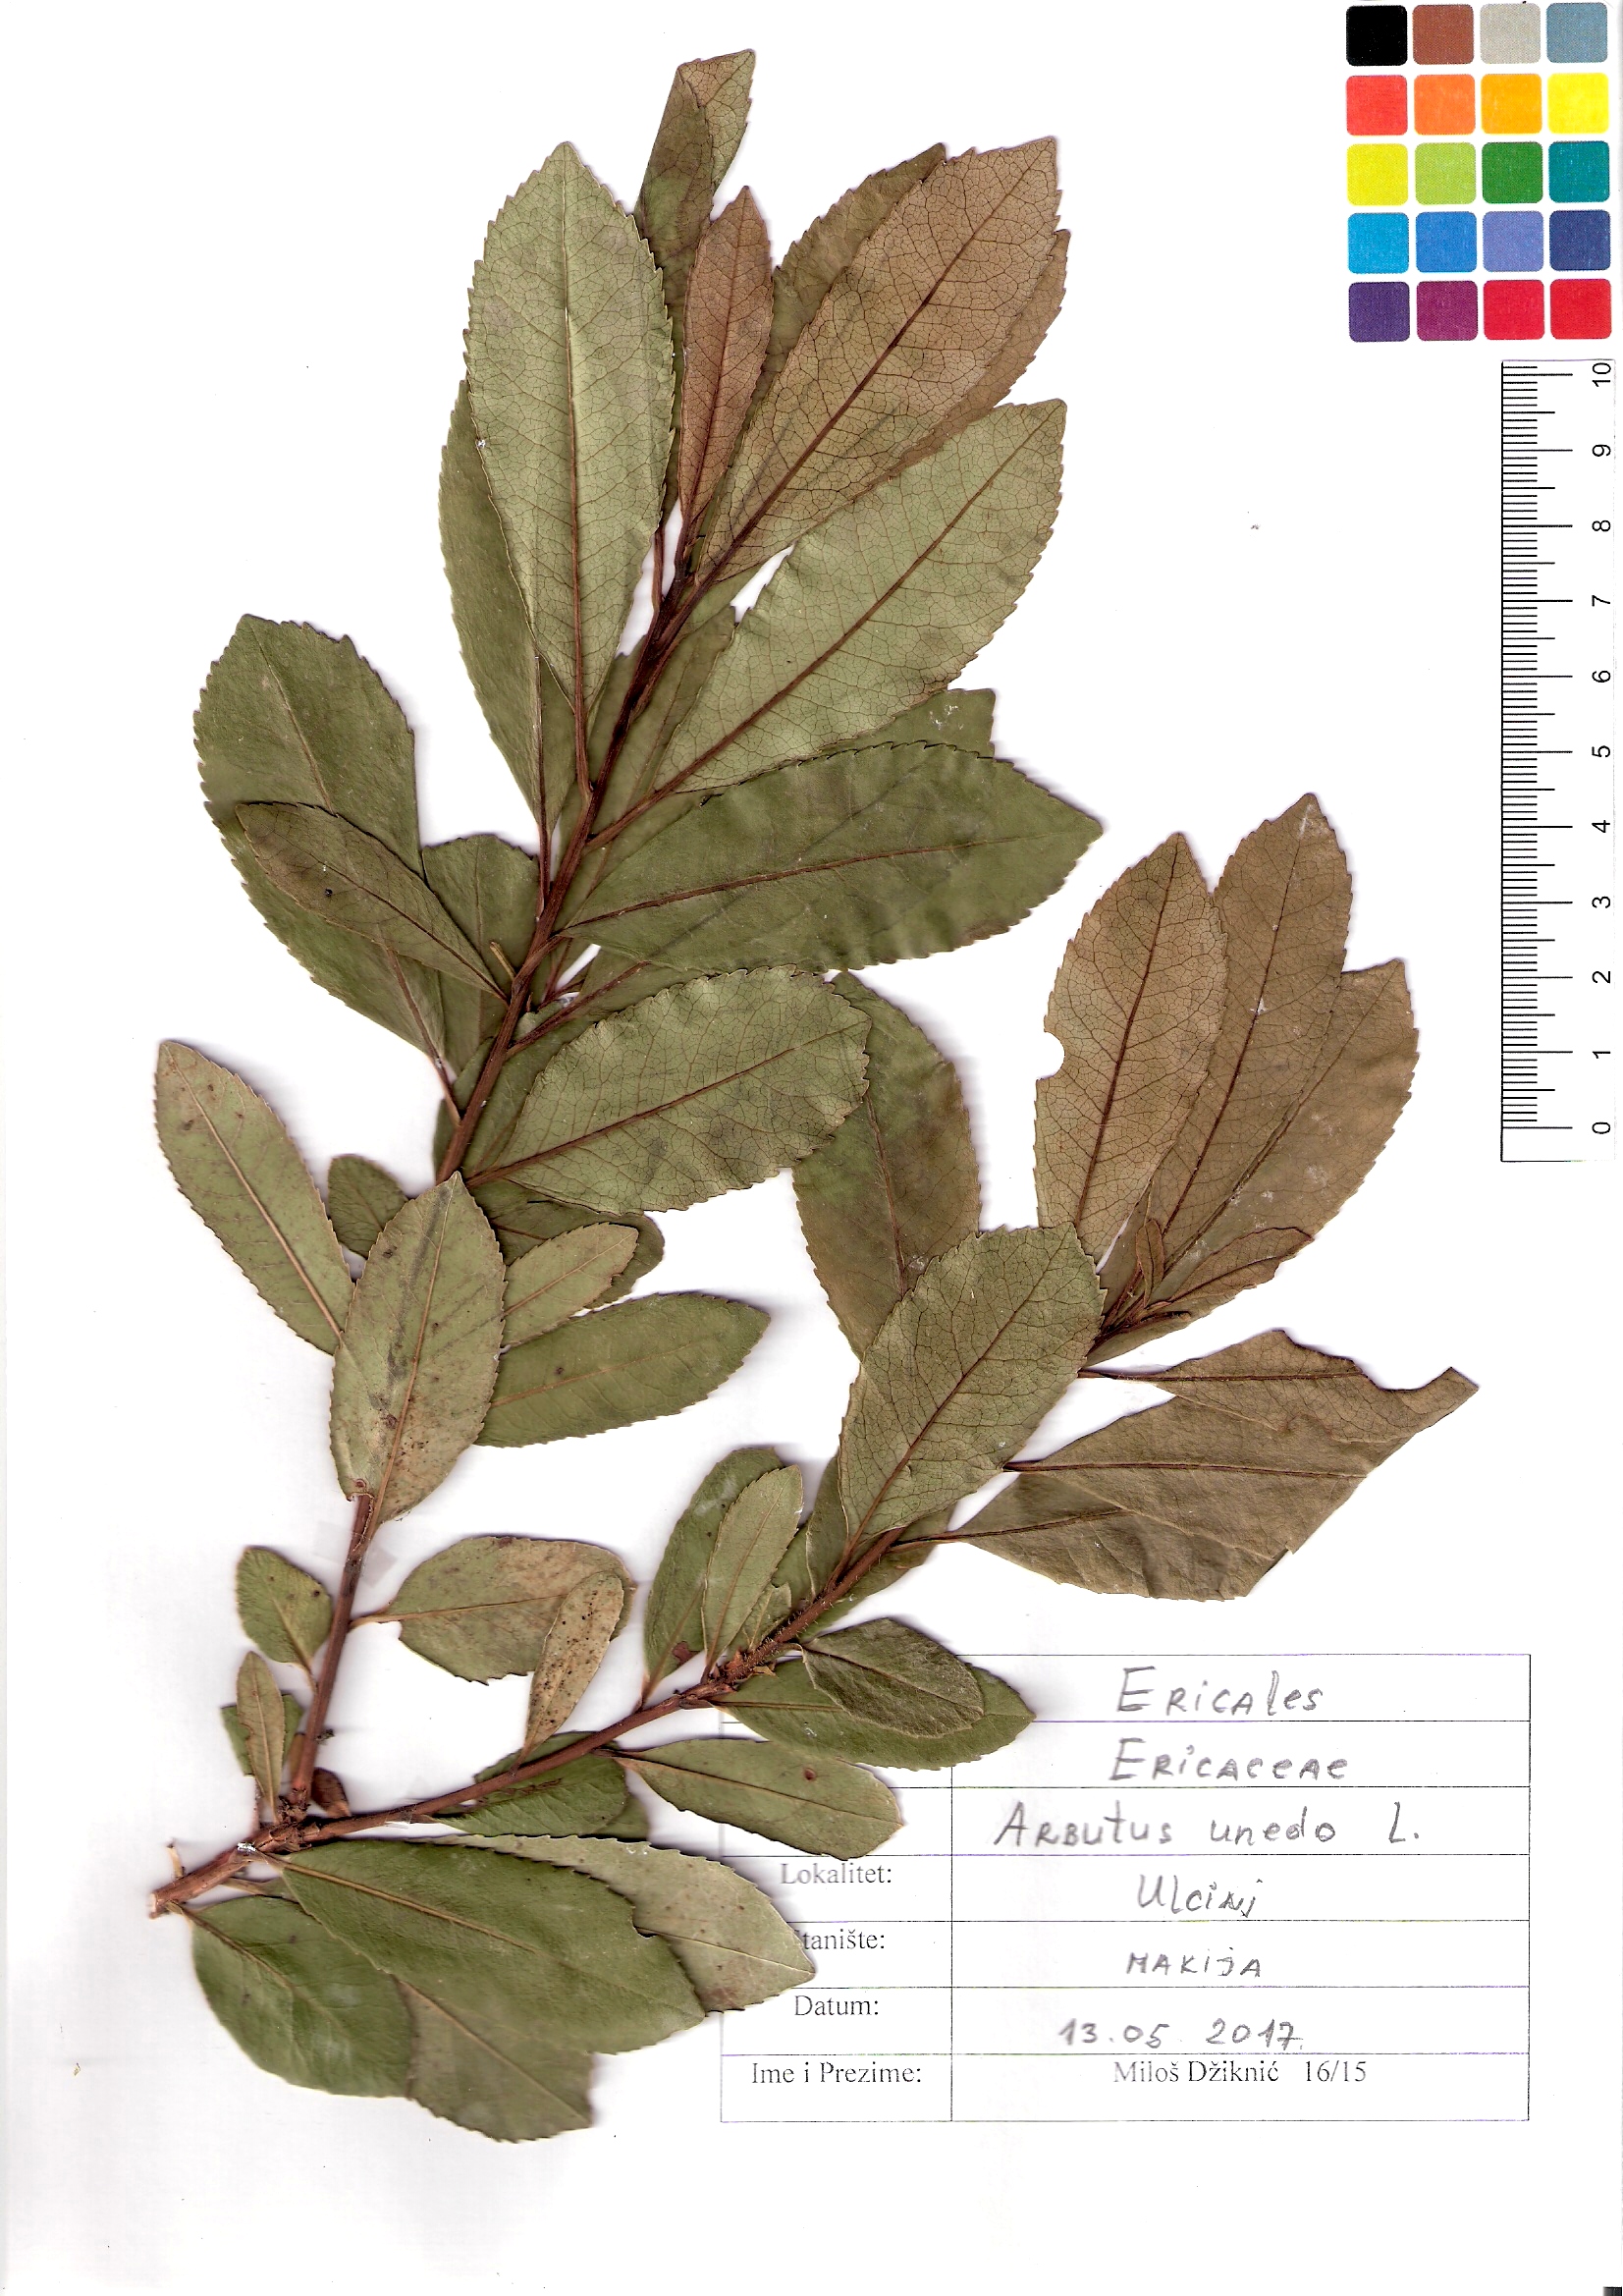 10
9
8
7
6
5
4
3
2
1
0
Ericales
Ericaceae
Arbutus unedo L.
Lokalitet: Ulcinj
tanište: makija
Datum: 13.05.2017.
Ime i Prezime: Miloš Džiknić 16/15